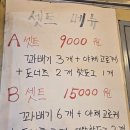 셋트 메뉴
A 셋트 9000원
꽈배기 3개 + 야채고로케
+ 도너츠 2개 핫도그 1개
B 셋트 15000원
꽈배기 6개 + 야채